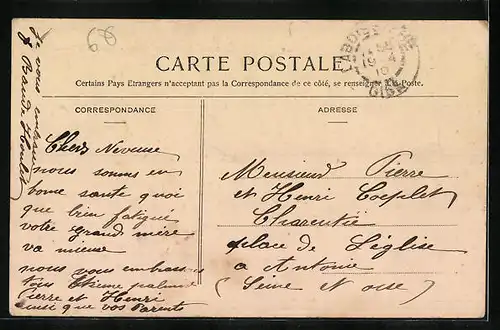 68
CARTE POSTALE
Certains Pays Etrangers n'acceptant pas la Correspondance de ce côté, se renseigner à la Poste.
CORRESPONDANCE
ADRESSE
Je vous embrasse
Chers Neveux
nous sommes en
bonne sante quoi
que bien fatigué
votre grand mère
va mieux
nous vous embrassons
tous Etienne
Pierre et Henri
ainsi que vos Parents
Monsieur Pierre
et Henri Coeplet
Charentié
place de L'église
a Antonie
(Seine et oise)